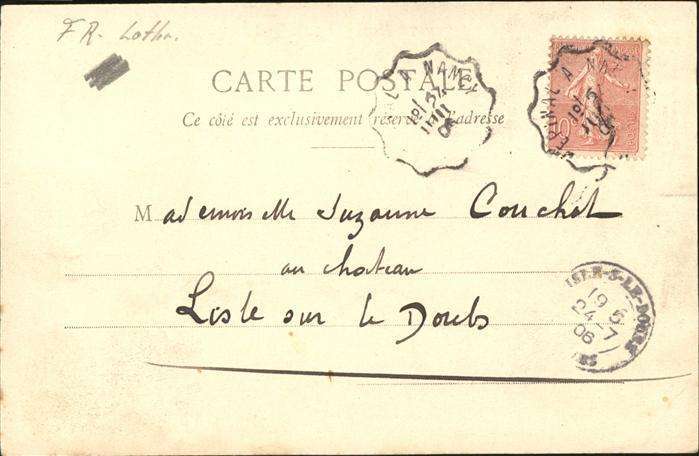 FR- Lothr.
CARTE POSTALE
Ce côté est exclusivement réservé à l'adresse
EPINAL A NANCY
EPINAL A NAN
Mademoiselle Suzanne Couchet
au chateau
Lisle sur le Doubs
ISLE-S-LE-DOUBS
19
24-7
06